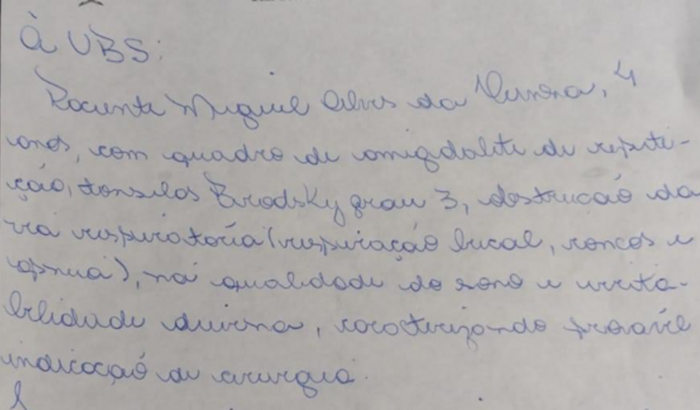 À UBS:
Paciente Miguel Alves da, 4
anos, com quadro de amigdalite de repeti-
ção, tonsilas Brodsky grau 3, obstrução da
via respiratória (respiração bucal, roncos e
apneia), má qualidade do sono e irrita-
bilidade diurna, caracterizando provável
indicação de cirurgia.